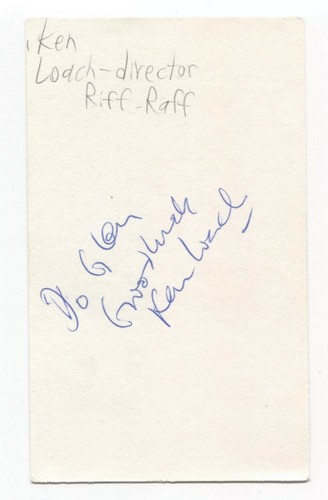 Ken
Loach-director
Riff-Raff
To Glen
Good luck
Ken Loach